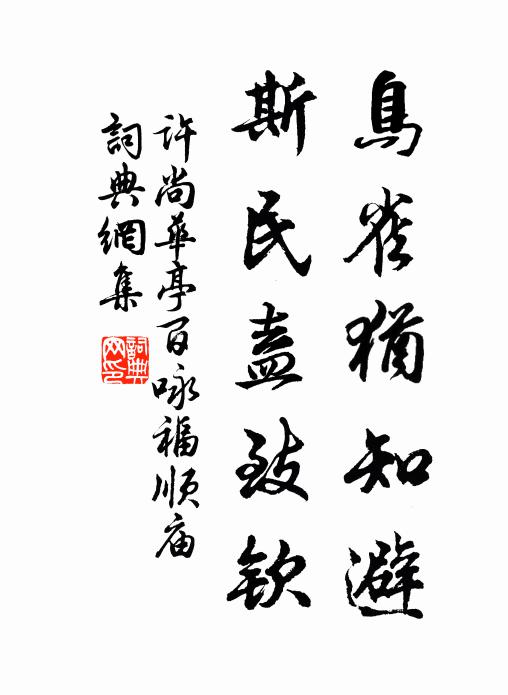 鳥雀猶知避
斯民盍致欽
许尚華亭百咏福順庙
詞典網集
詞典网印